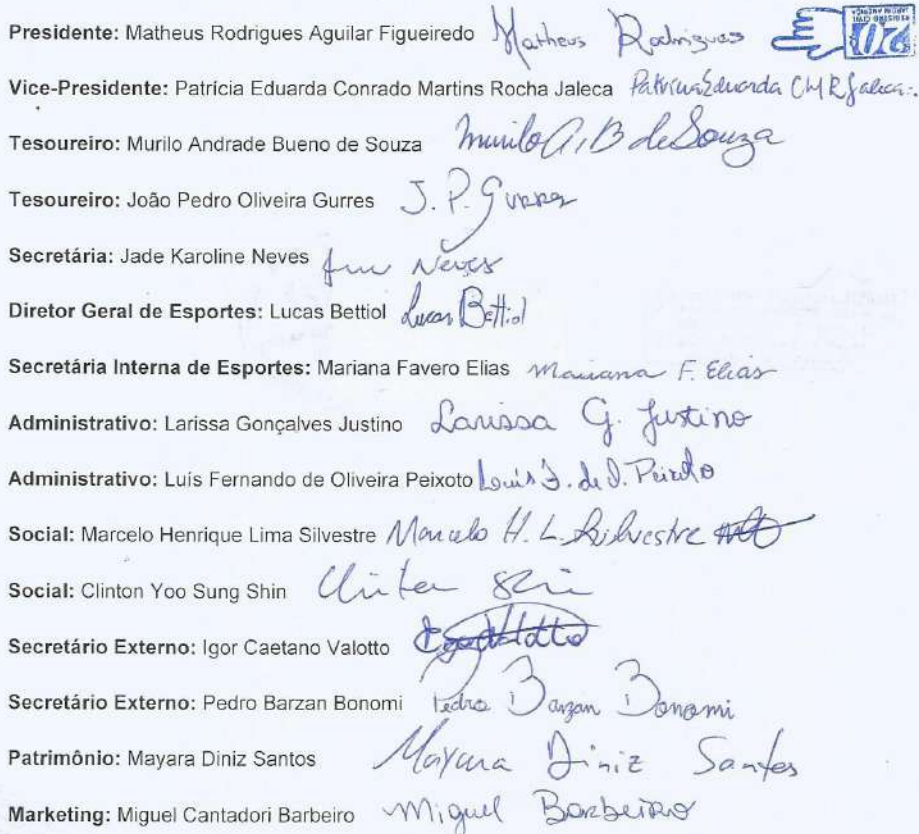 Presidente: Matheus Rodrigues Aguilar Figueiredo Matheus Rodrigues
REGISTRO CIVIL
JARDIM AMÉRICA
20
Vice-Presidente: Patrícia Eduarda Conrado Martins Rocha Jaleca Patricia Eduarda CMRJaleca
Tesoureiro: Murilo Andrade Bueno de Souza Murilo A. B de Souza
Tesoureiro: João Pedro Oliveira Gurres J. P. Gurres
Secretária: Jade Karoline Neves Neves
Diretor Geral de Esportes: Lucas Bettiol Lucas Bettiol
Secretária Interna de Esportes: Mariana Favero Elias Mariana F. Elias
Administrativo: Larissa Gonçalves Justino Larissa G. Justino
Administrativo: Luís Fernando de Oliveira Peixoto Louis F. de O. Peixoto
Social: Marcelo Henrique Lima Silvestre Marcelo H. L. Silvestre
Social: Clinton Yoo Sung Shin Clinton Shin
Secretário Externo: Igor Caetano Valotto Igor Valotto
Secretário Externo: Pedro Barzan Bonomi Pedro Barzan Bonomi
Patrimônio: Mayara Diniz Santos Mayara Diniz Santos
Marketing: Miguel Cantadori Barbeiro Miguel Barbeiro